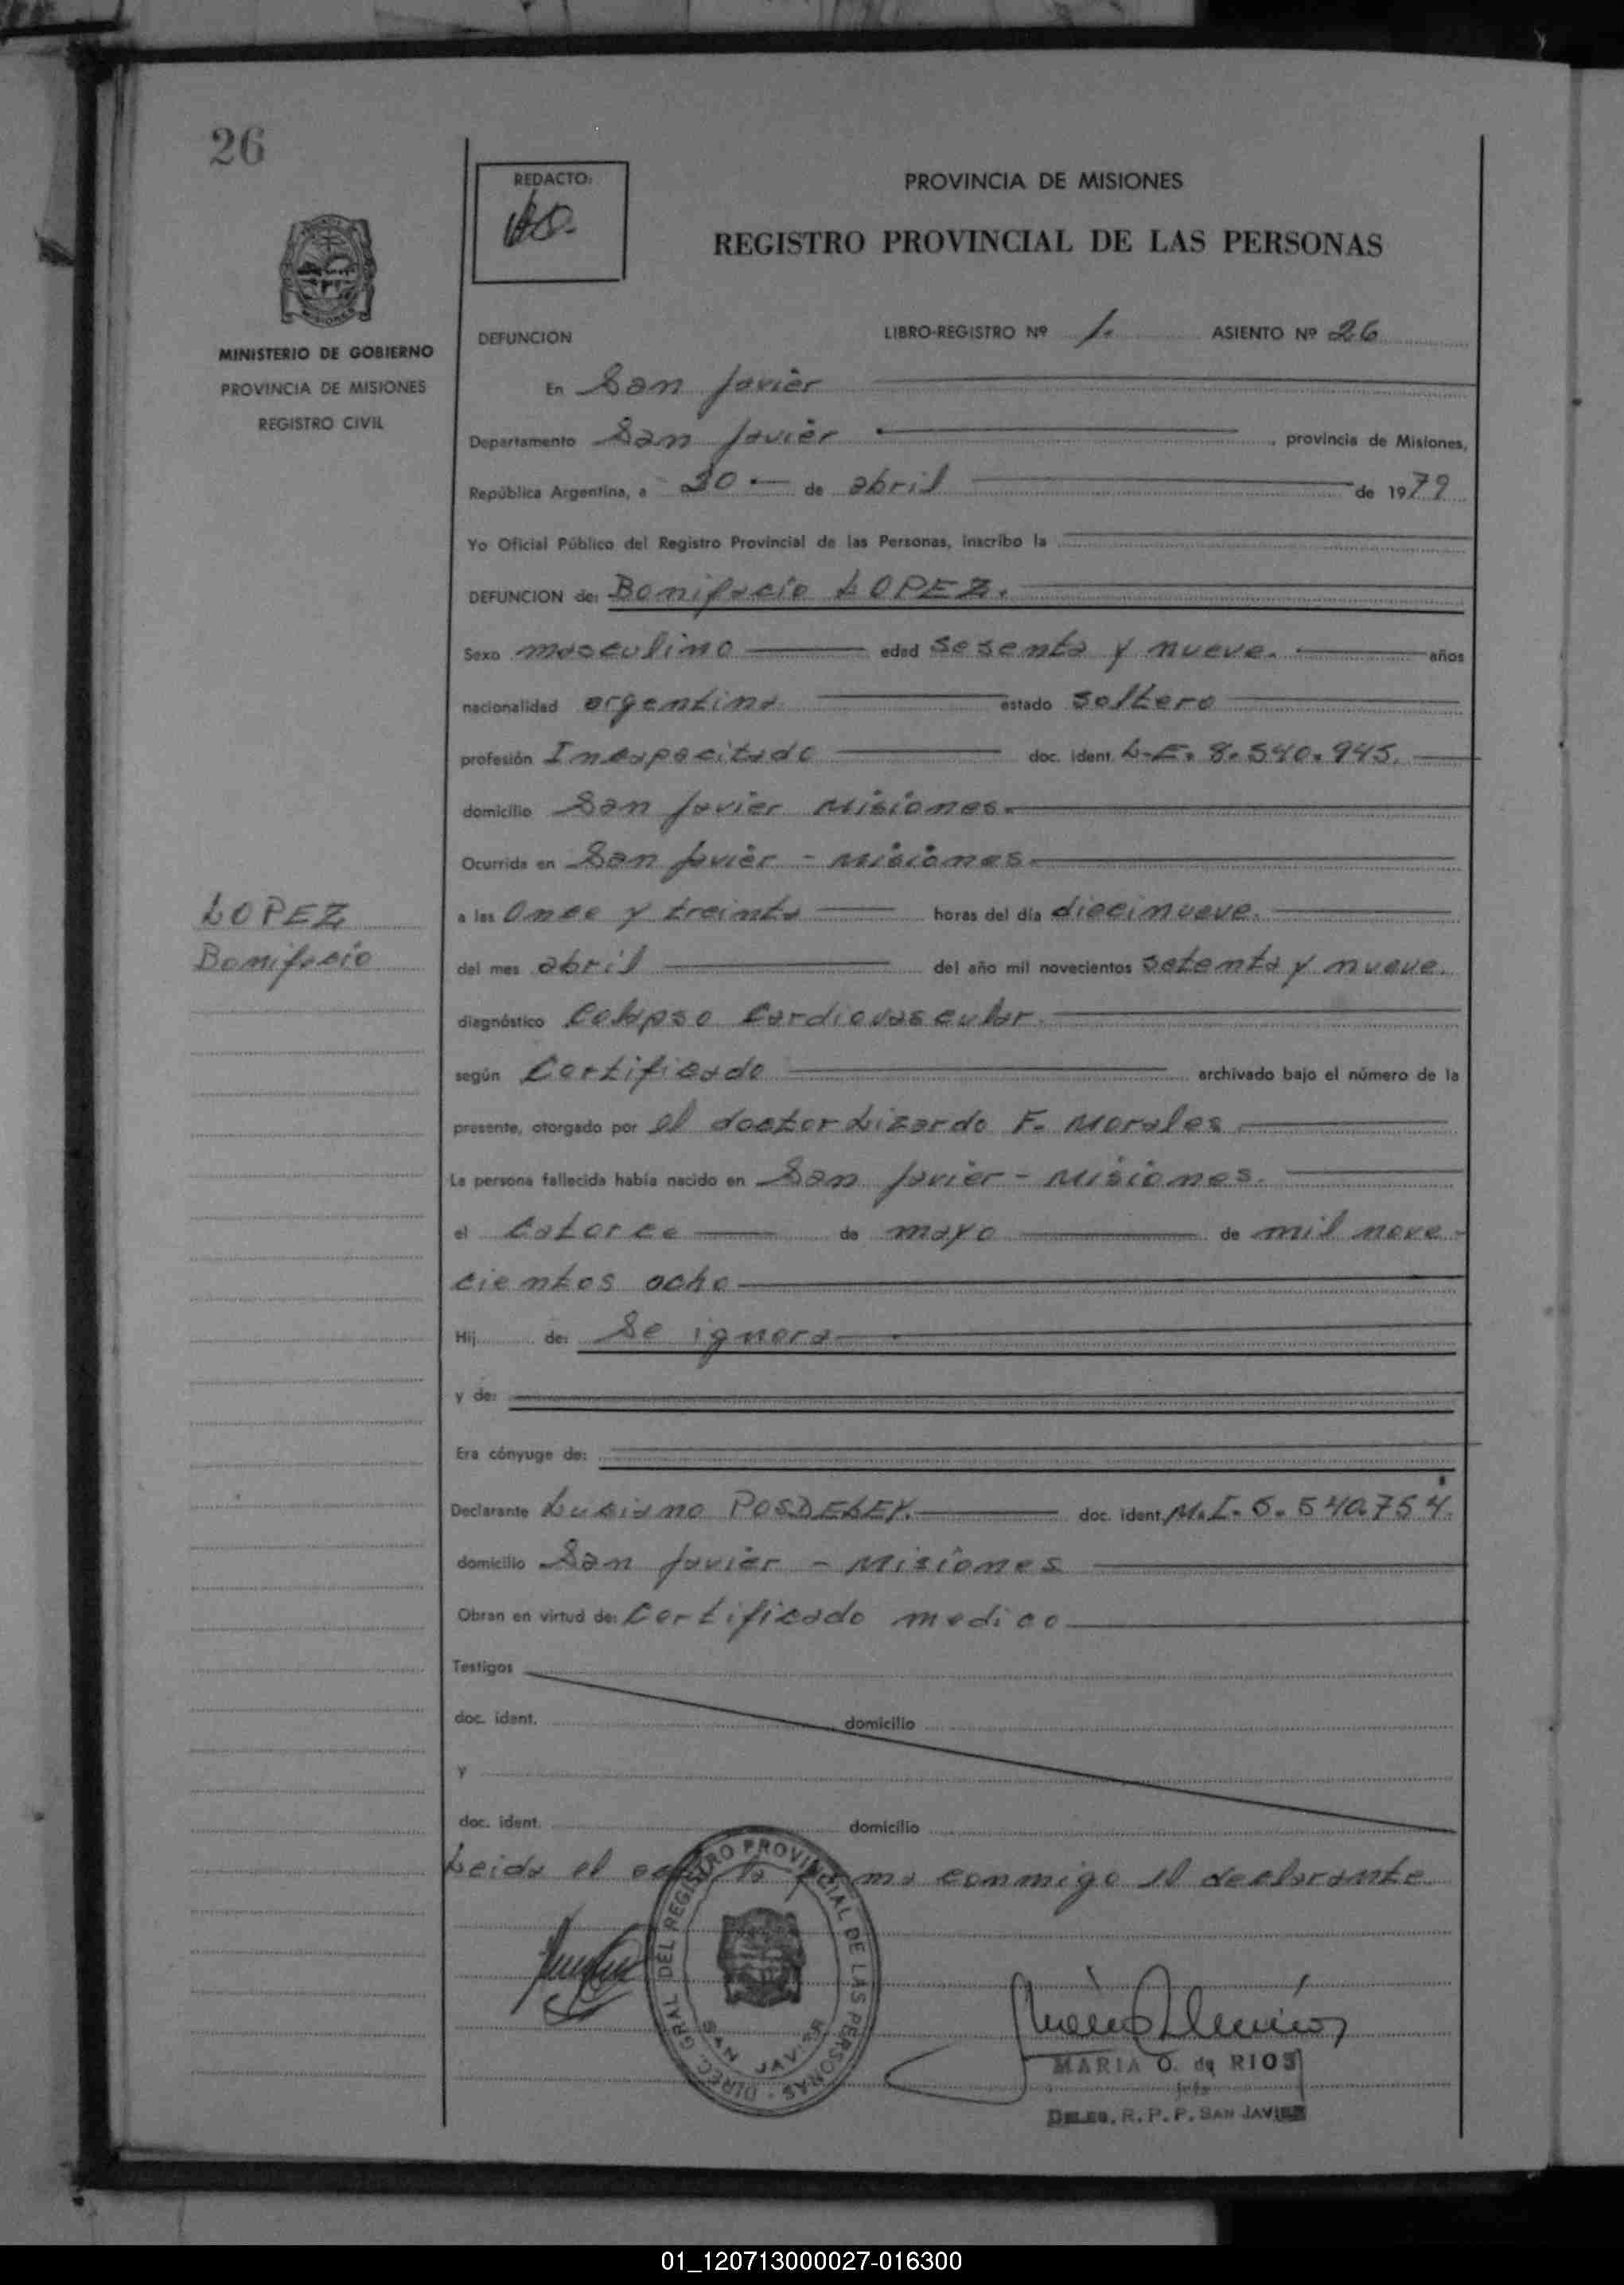 26
REDACTO:
PROVINCIA DE MISIONES
REGISTRO PROVINCIAL DE LAS PERSONAS
MISIONES
MINISTERIO DE GOBIERNO
PROVINCIA DE MISIONES
REGISTRO CIVIL
DEFUNCION LIBRO-REGISTRO Nº 1. ASIENTO Nº 26
En San Javier
Departamento San Javier, provincia de Misiones,
República Argentina, a 20 de abril de 1979
Yo Oficial Público del Registro Provincial de las Personas, inscribo la
DEFUNCION de: Bonifacio LOPEZ.
Sexo masculino edad sesenta y nueve. años
nacionalidad argentina estado soltero
profesión Incapacitado doc. ident. L-E. 8.540.945.
domicilio San Javier Misiones.
Ocurrida en San Javier - Misiones.
a las Once y treinta horas del día diecinueve.
del mes abril del año mil novecientos setenta y nueve.
diagnóstico Colapso Cardiovascular.
según Certificado archivado bajo el número de la
presente, otorgado por el doctor Lizardo F. Morales
La persona fallecida había nacido en San Javier - Misiones.
el Catorce de mayo de mil nove-
cientos ocho
Hij de: Se ignora
y de:
Era cónyuge de:
Declarante Lusiano POSDELEY. doc. ident. M.I. 5.540.754.
domicilio San Javier - Misiones
Obran en virtud de: Certificado medico
Testigos
doc. ident. domicilio
y
doc. ident. domicilio
Leida el acta la firma conmigo el declarante
LOPEZ
Bonifacio
DIREC. GRAL. DEL REGISTRO PROVINCIAL DE LAS PERSONAS
SAN JAVIER
MARIA O. de RIOS
Jefe
DELEG. R. P. P. SAN JAVIER
01_120713000027-016300